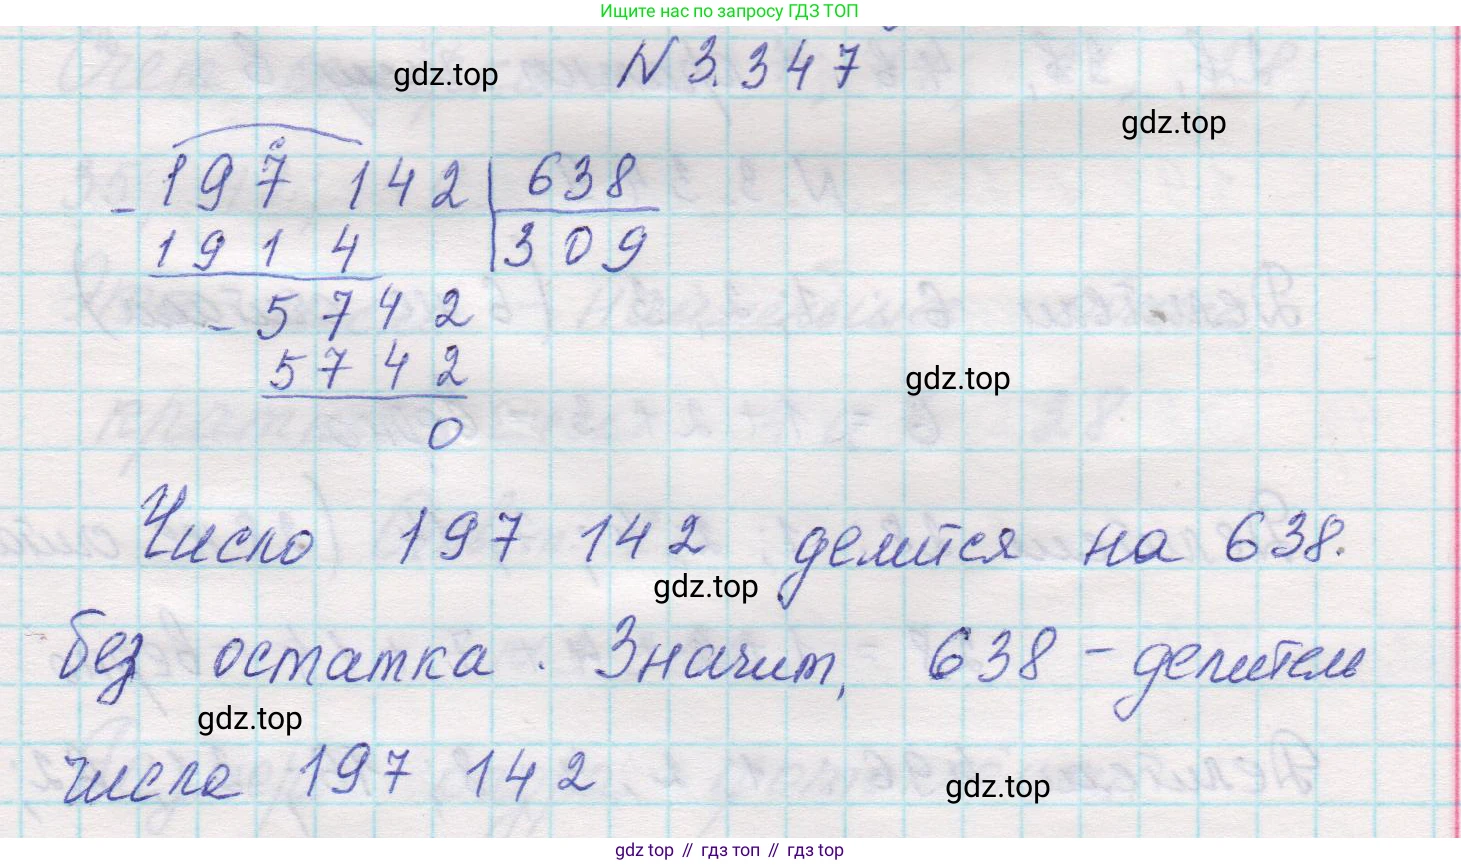 Ищите нас по запросу ГДЗ ТОП
N 3.347
gdz.top
gdz.top
197 142 638
- 1914 309
- 5742
5742
gdz.top
0
Число 197 142 делится на 638.
gdz.top
без остатка. Значит, 638 - делитель
gdz.top
числа 197 142
gdz.top
gdz top // гдз топ // гдз top